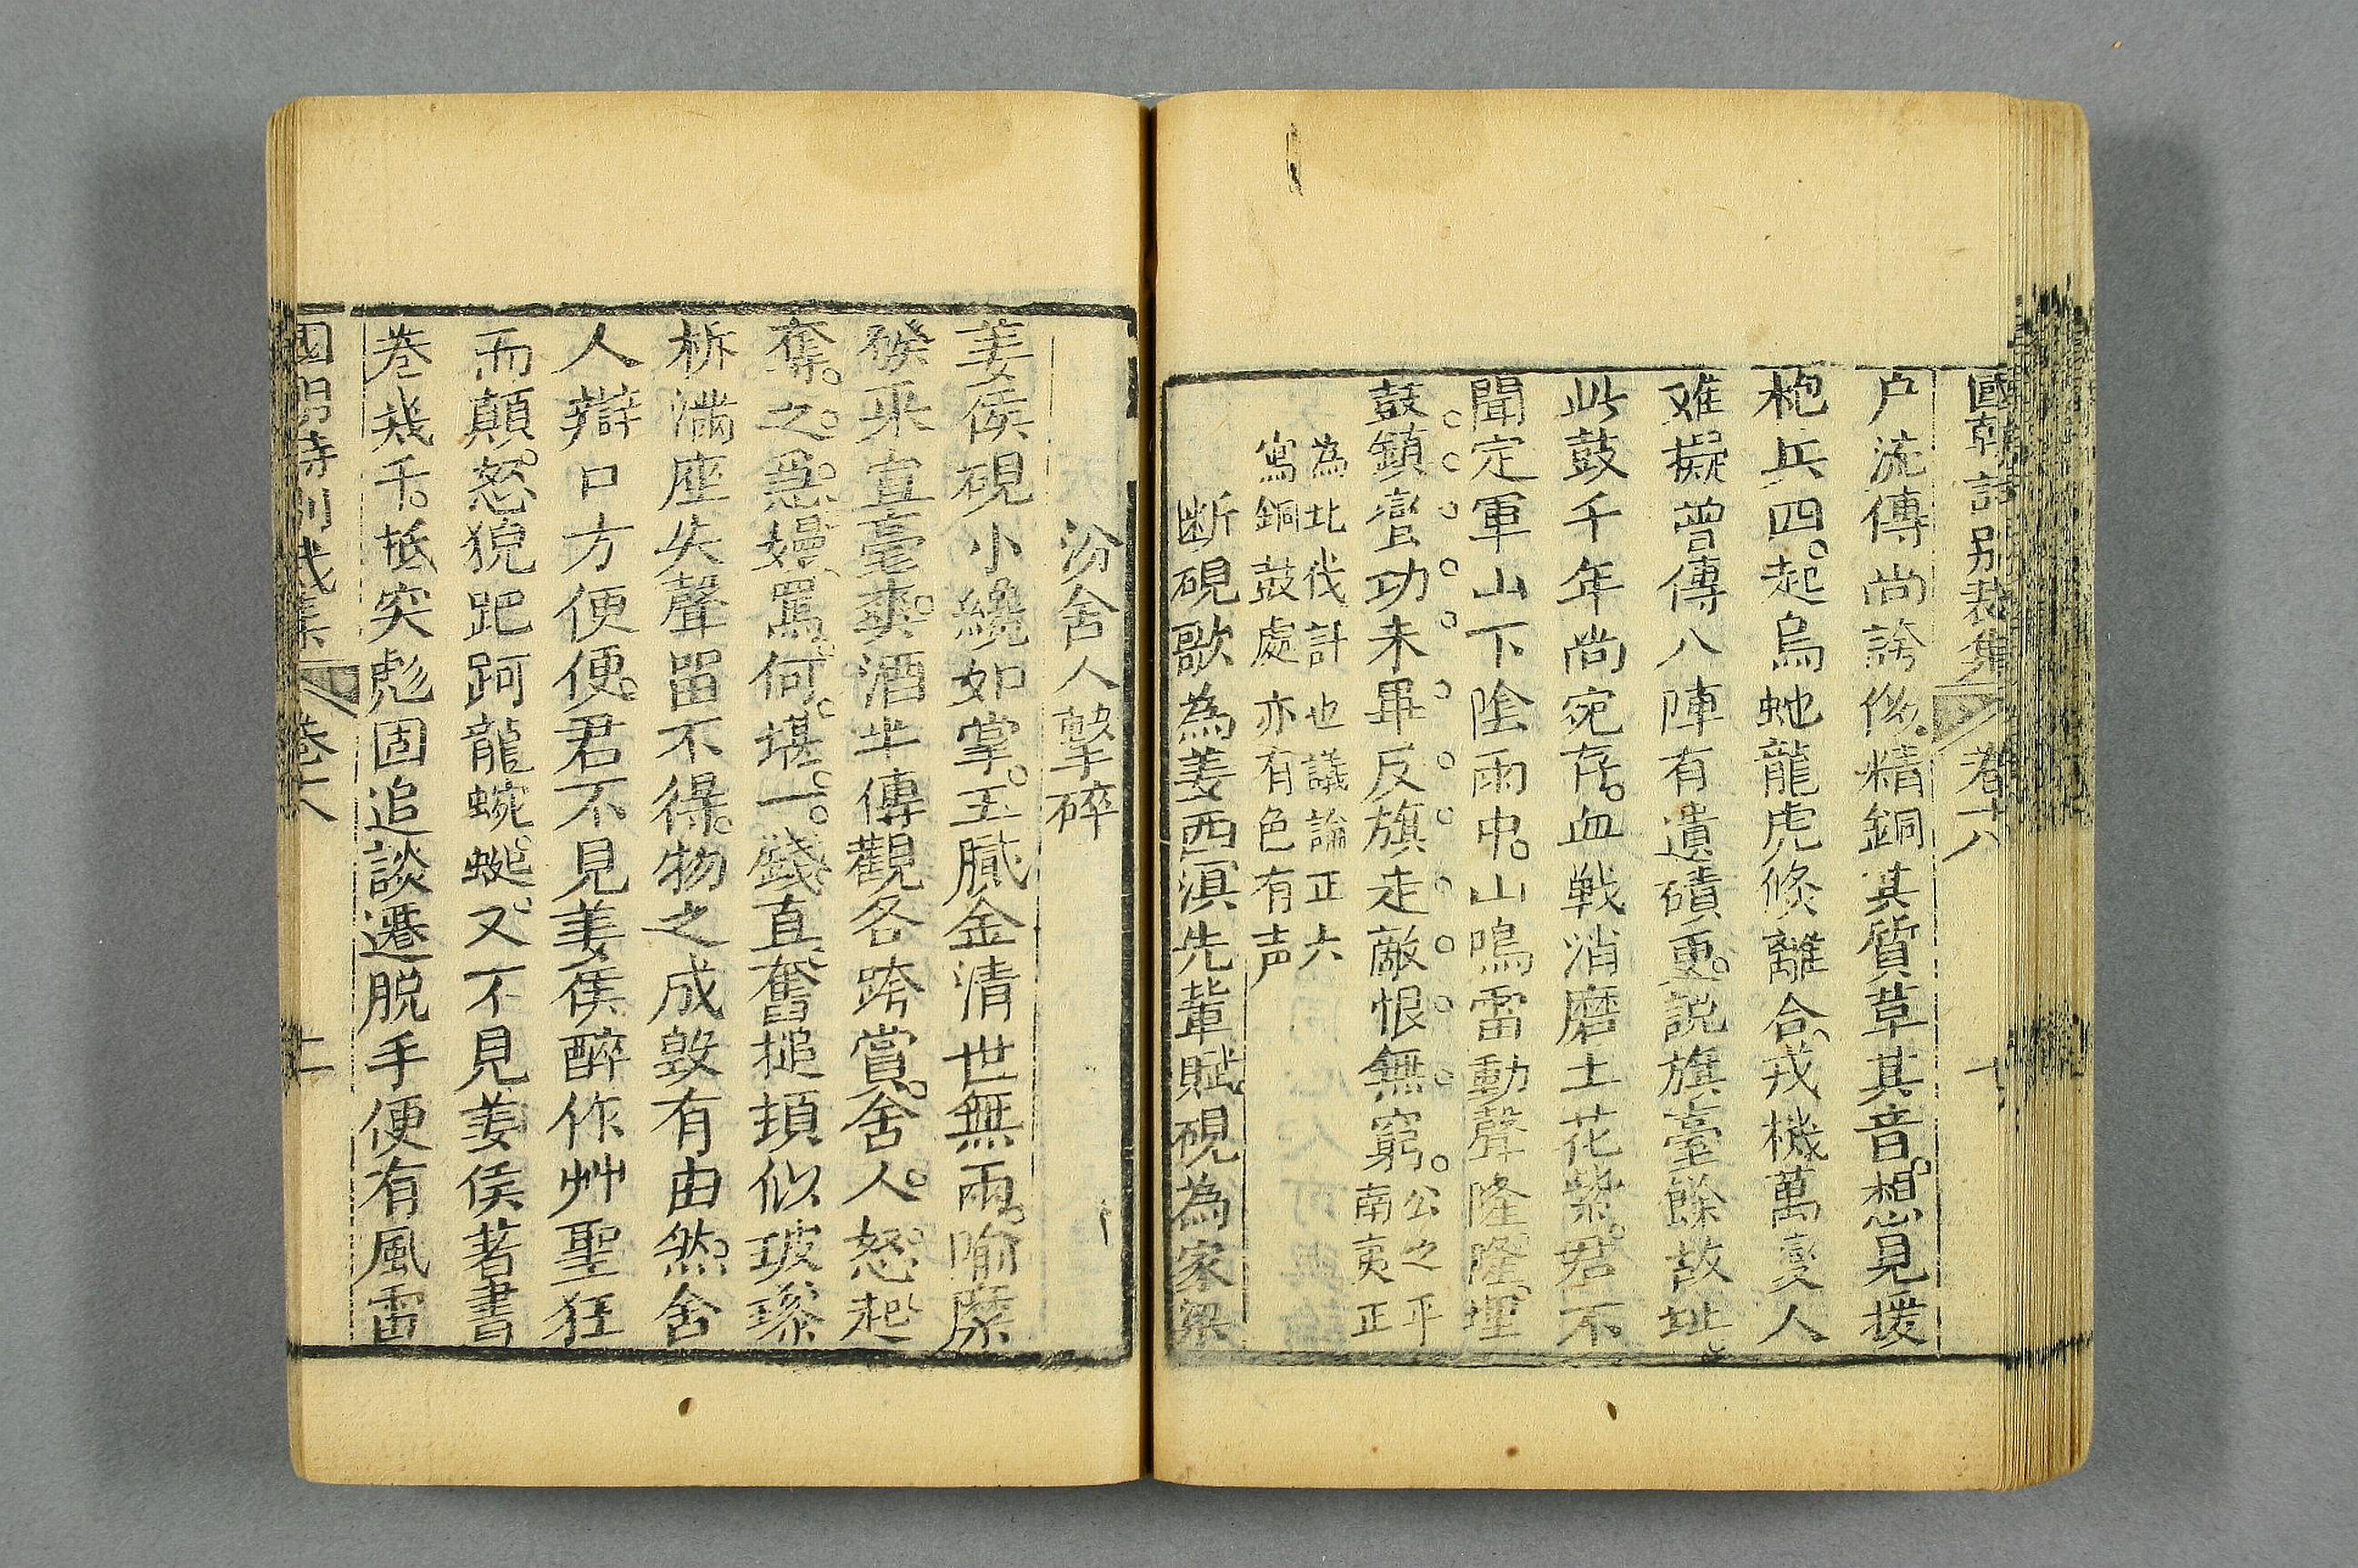 國朝詩別裁集 卷十六
户流傳尚誇侈精銅其質革其音想見援
枹兵四起鳥蛇龍虎倏離合戎機萬變人
难擬曾傳八陣有遺磧更說旗臺餘故址
此鼓千年尚宛存血戰消磨土花紫君不
聞定軍山下陰雨中山鳴雷動聲隆隆埋
鼓鎮蠻功未畢反旗走敵恨無窮公之平南夷正
為北伐計也議論正大
寫銅鼓處亦有色有声
断硯歌為姜西溟先輩賦硯為家梁
汾舍人擊碎
姜侯硯小纔如掌玉膩金清世無兩喻糜
候采宣毫爽酒半傳觀各跨賞舍人怒起
奪之急嫚罵何堪一錢直奮搥頃似玻瓈
柝满座失聲留不得物之成毀有由然舍
人辯口方便便君不見姜侯醉作艸聖狂
而顛怒猊跁跒龍蜿蜒又不見姜侯著書
卷幾千抵突彪固追談遷脱手便有風雷
國朝詩別裁集 卷十六